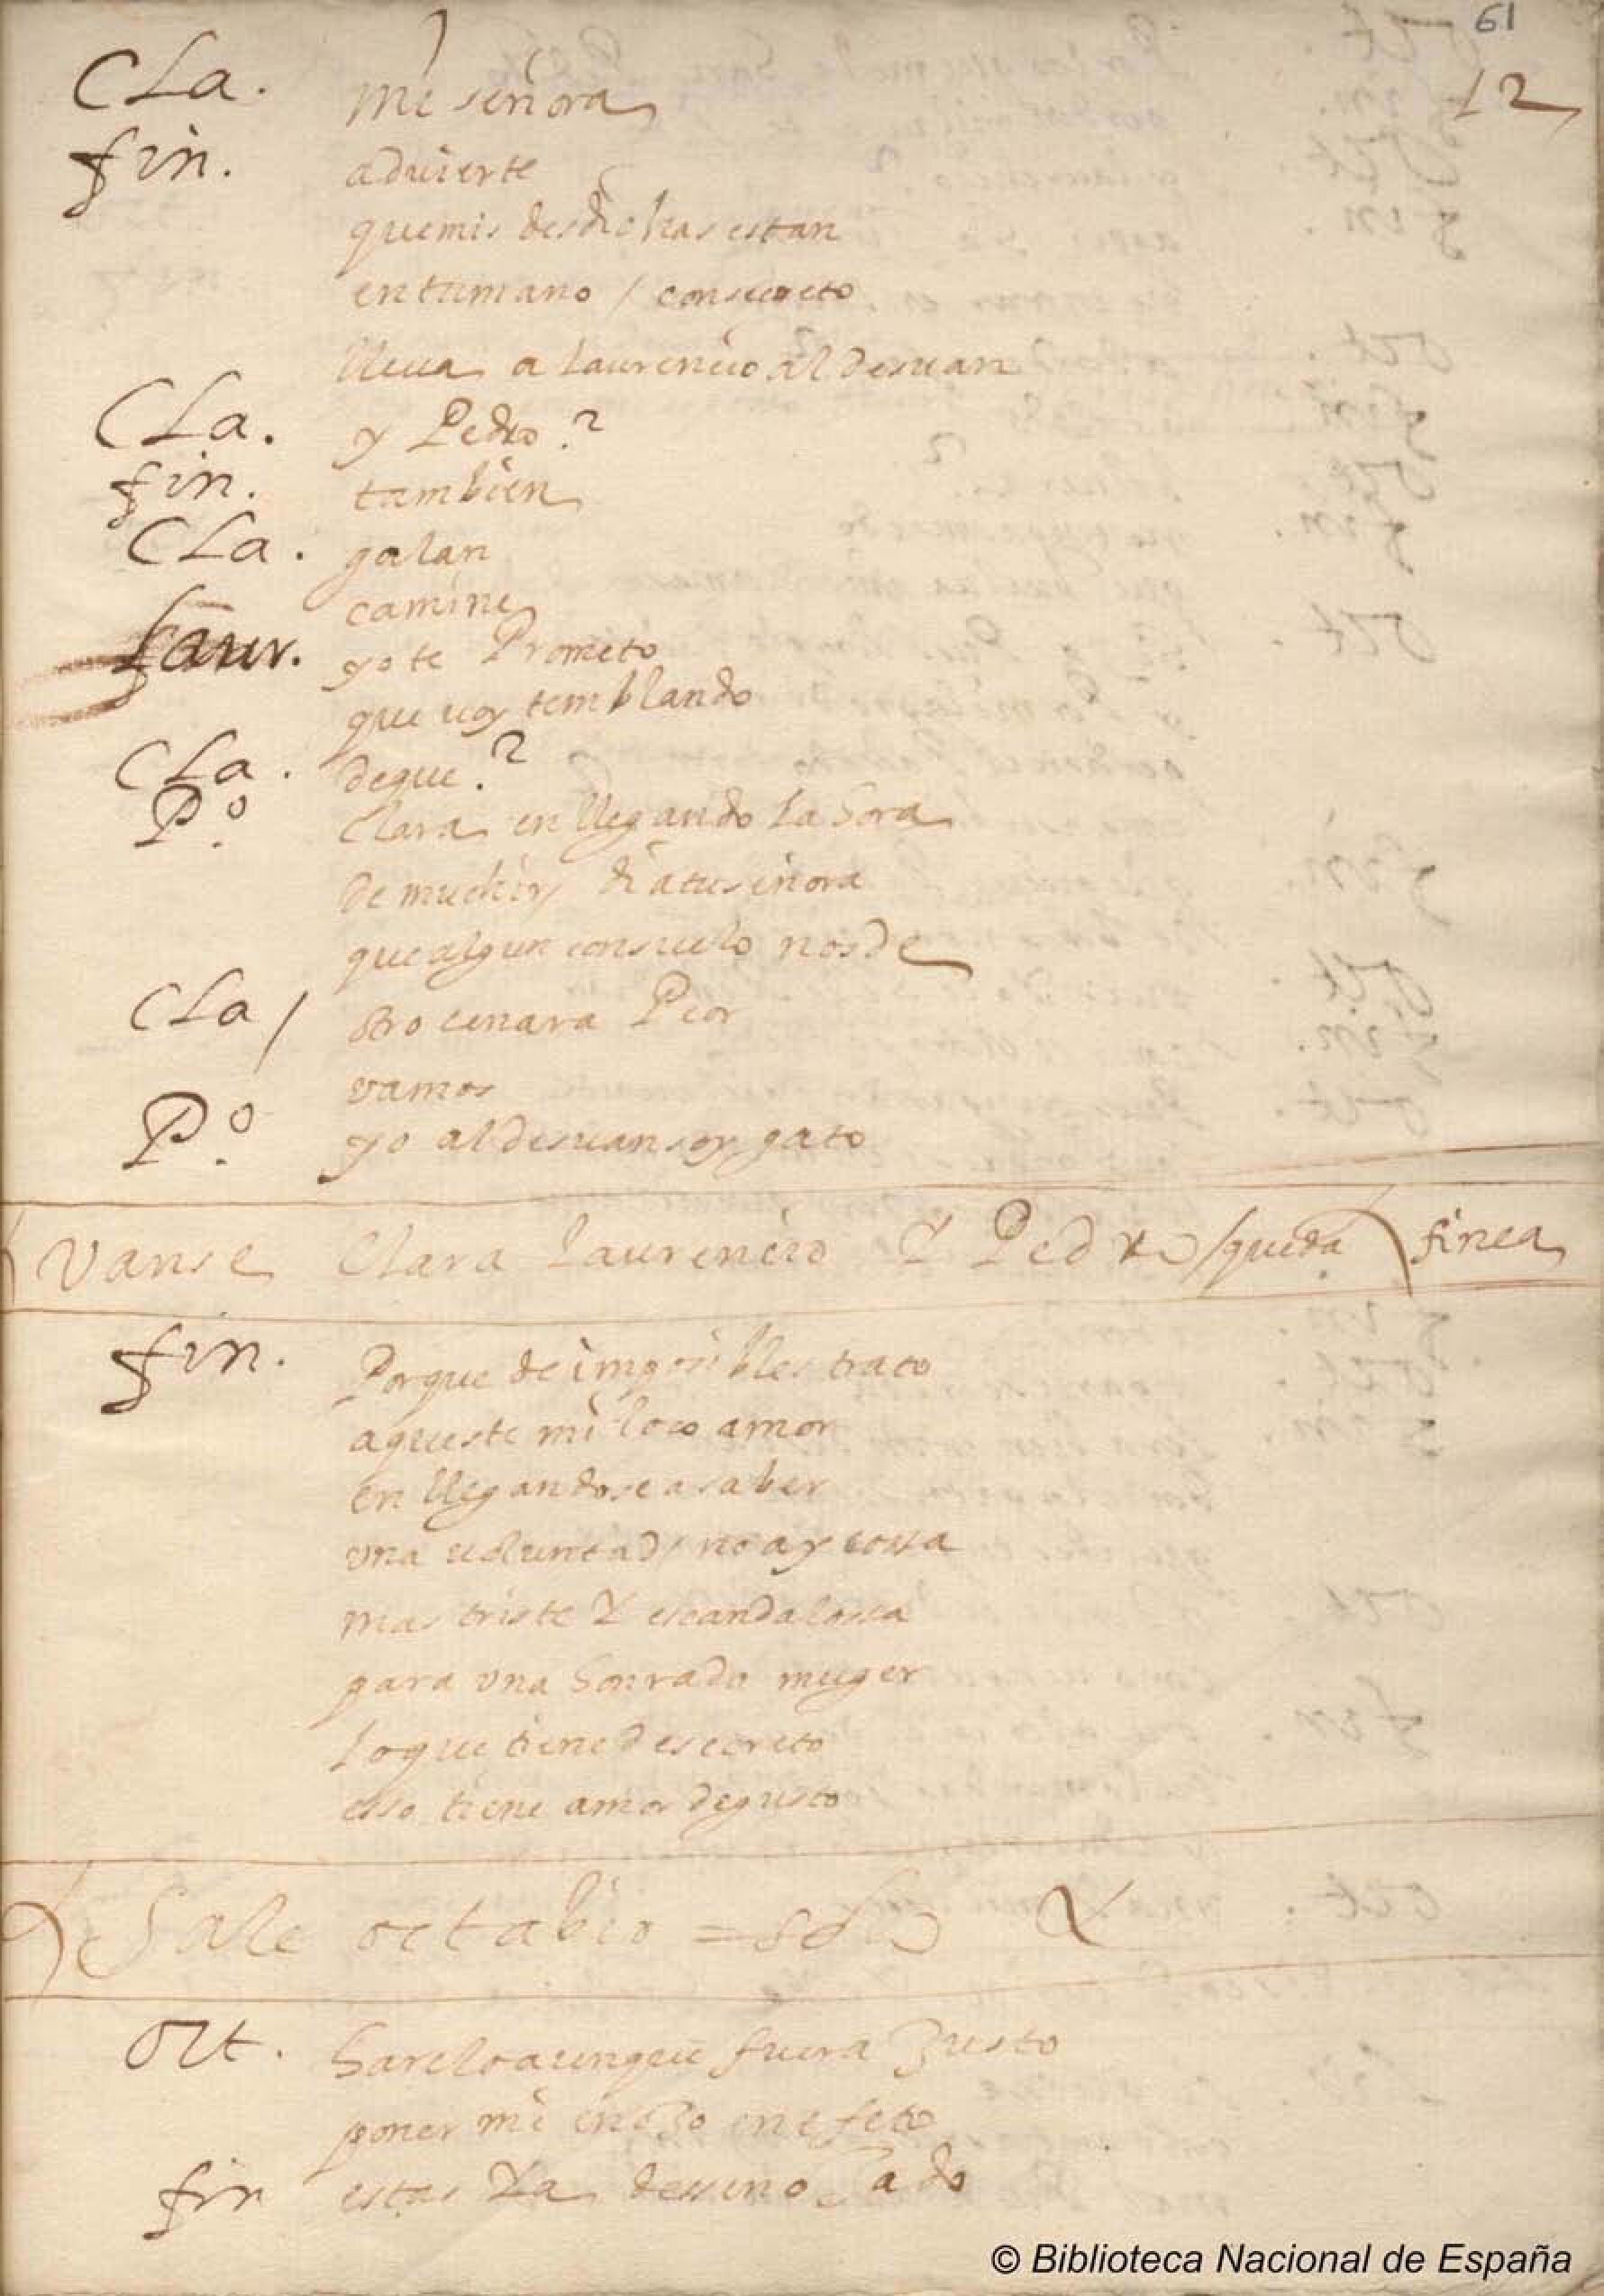 61
12
CLa. mi señora
fin. aduierte
que mis desdichas estan
en tu mano / con secreto
lleua a laurencio al desuan
CLa. y Pedro?
fin. tambien
CLa. galan
camine
Laur. yo te Prometo
que uoy temblando
CLa. de que?
Pº. Clara en llegando la hora
de muchir di a tu señora
que algun consuelo nos de
CLa / otro cenara Peor
vamos
Pº. yo al desuan soy gato
Vanse Clara laurencio Y Pedro / queda finea
fin. Porque de imposibles trato
aqueste mi loco amor
en llegandose a saber
vna voluntad / no ay cossa
mas triste Y escandalossa
para vna honrada muger
lo que tiene de secreto
esso tiene amor de gusto
Sale octabio = solo
Oct. harelo aunque fuera Justo
poner mi enojo en efeto
fin estas Ya desenojado
© Biblioteca Nacional de España